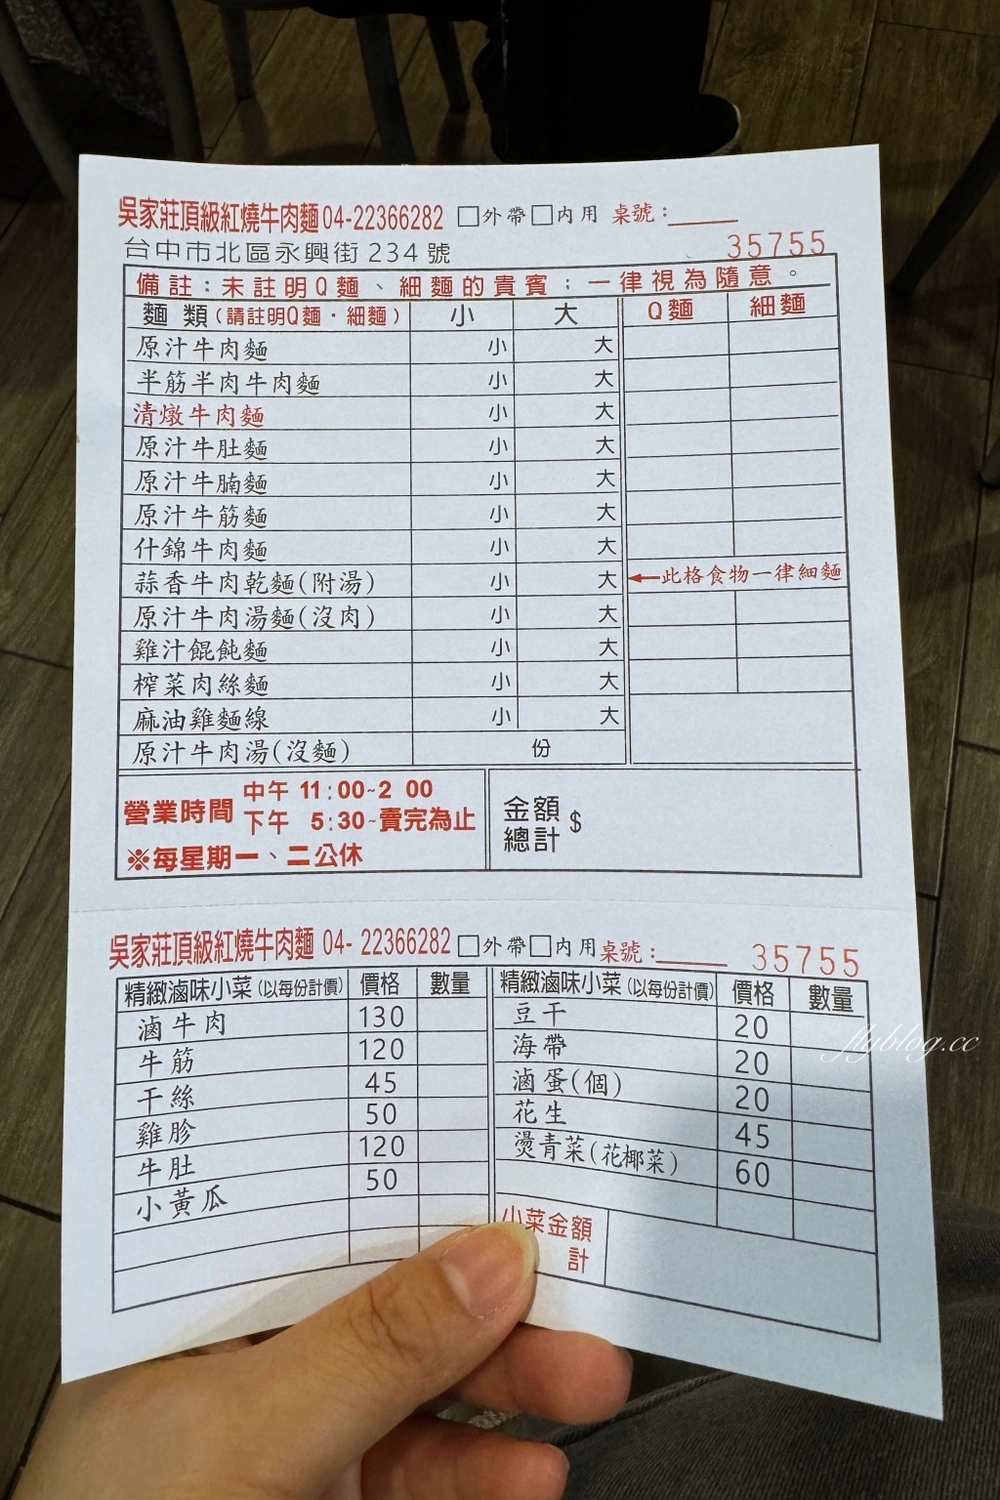 吳家莊頂級紅燒牛肉麵 04-22366282 □外帶□內用 桌號：
台中市北區永興街 234 號 35755
備註：未註明Q麵、細麵的貴賓；一律視為隨意。
麵 類（請註明Q麵・細麵） 小 大 Q麵 細麵
原汁牛肉麵 小 大
半筋半肉牛肉麵 小 大
清燉牛肉麵 小 大
原汁牛肚麵 小 大
原汁牛腩麵 小 大
原汁牛筋麵 小 大
什錦牛肉麵 小 大
蒜香牛肉乾麵(附湯) 小 大 ←此格食物一律細麵
原汁牛肉湯麵(沒肉) 小 大
雞汁餛飩麵 小 大
榨菜肉絲麵 小 大
麻油雞麵線 小 大
原汁牛肉湯(沒麵) 份
營業時間 中午 11:00~2 00
下午 5:30~賣完為止
※每星期一、二公休
金額
總計 $
吳家莊頂級紅燒牛肉麵 04- 22366282 □外帶□內用 桌號：
35755
精緻滷味小菜 (以每份計價) 價格 數量 精緻滷味小菜 (以每份計價) 價格 數量
滷牛肉 130 豆干 20
牛筋 120 海帶 20
干絲 45 滷蛋(個) 20
雞胗 50 花生 45
牛肚 120 燙青菜(花椰菜) 60
小黃瓜 50
小菜金額
計
flyblog.cc